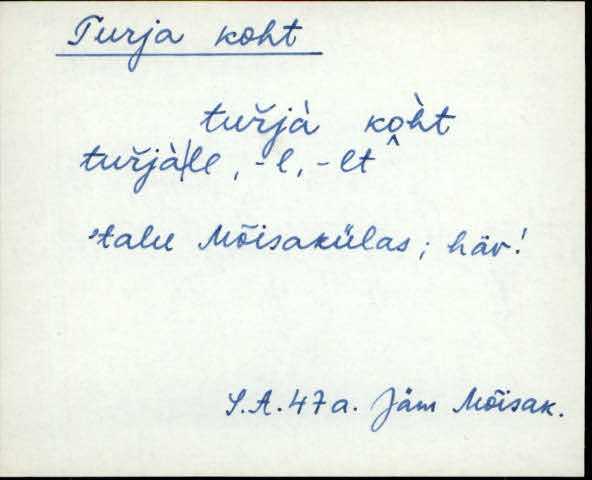 Turja koht
turjà koh̀t
turjà|le, -l, -lt
'talu Mõisakülas; häv!
S.A. 47a. Jäm Mõisak.